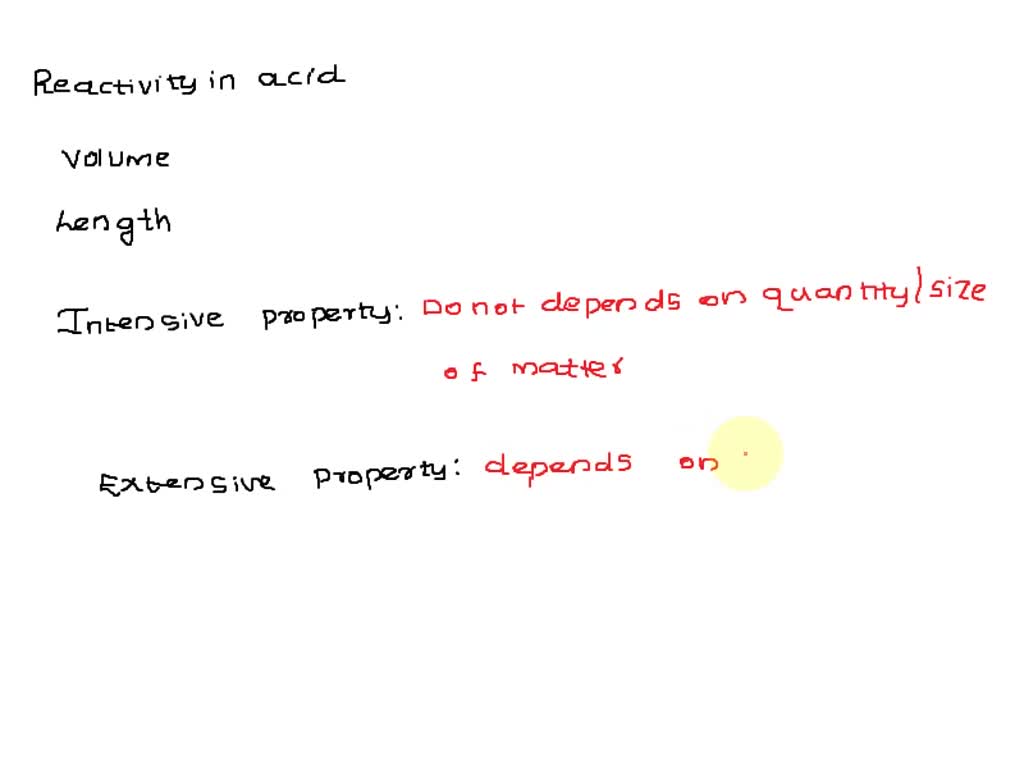 Reactivity in acid
Volume
Length
Intensive property: Do not depends on quantity/size
of matter
Extensive property: depends on